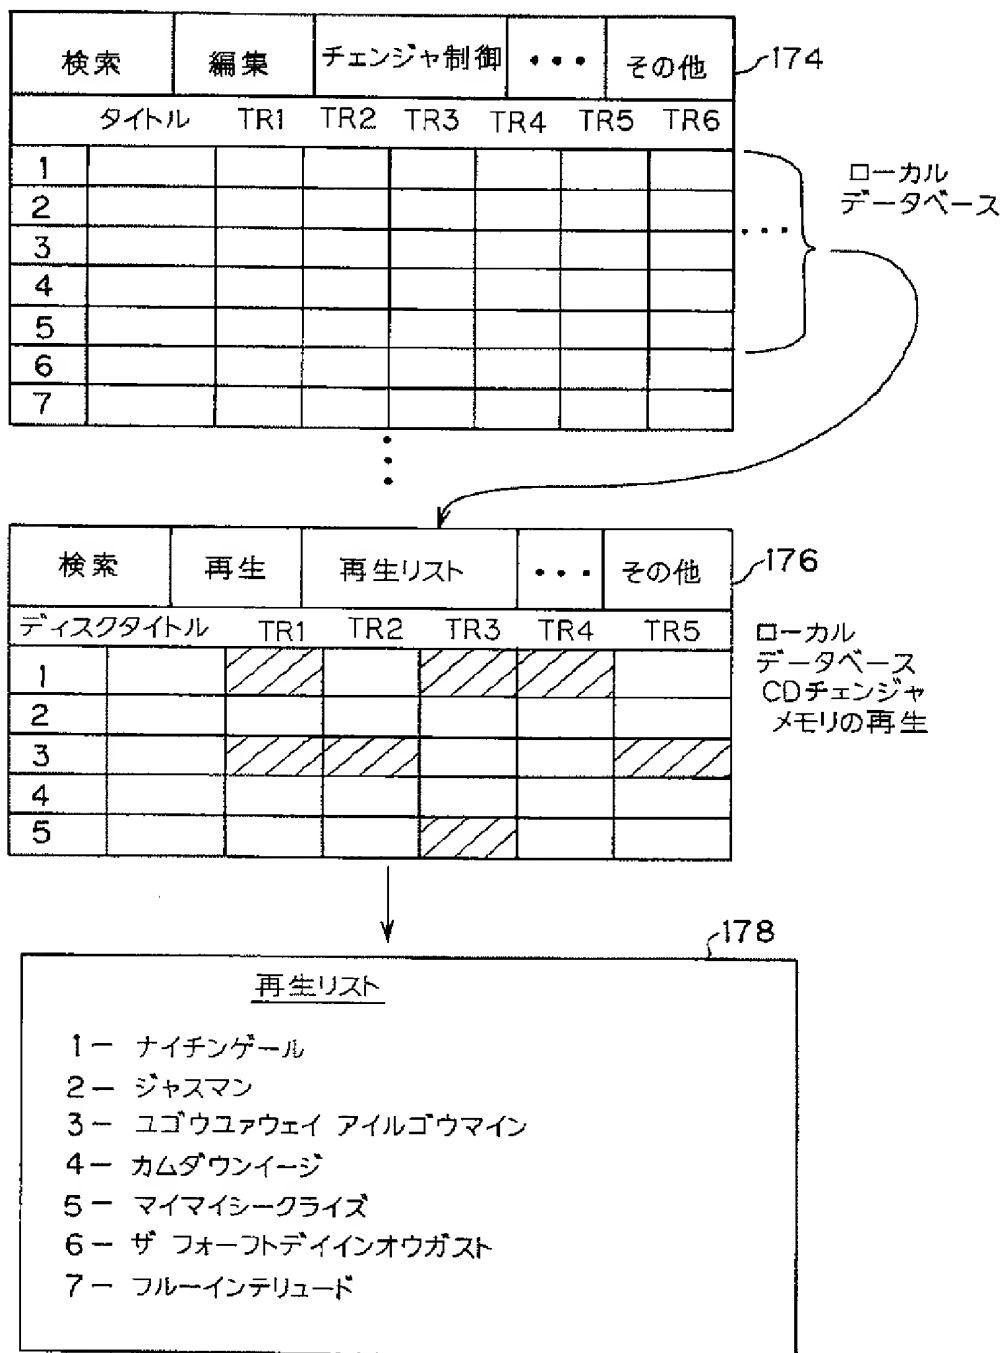 検索 編集 チェンジャ制御 ・・・ その他
174
タイトル TR1 TR2 TR3 TR4 TR5 TR6
1
2
3
4
5
6
7
・・・
ローカル
データベース
検索 再生 再生リスト ・・・ その他
176
ディスクタイトル TR1 TR2 TR3 TR4 TR5
1
2
3
4
5
ローカル
データベース
CDチェンジャ
メモリの再生
178
再生リスト
1− ナイチンゲール
2− ジャスマン
3− ユゴウユァウェイ アイルゴウマイン
4− カムダウンイージ
5− マイマイシークライズ
6− ザ フォーフトデイインオウガスト
7− フルーインテリュード